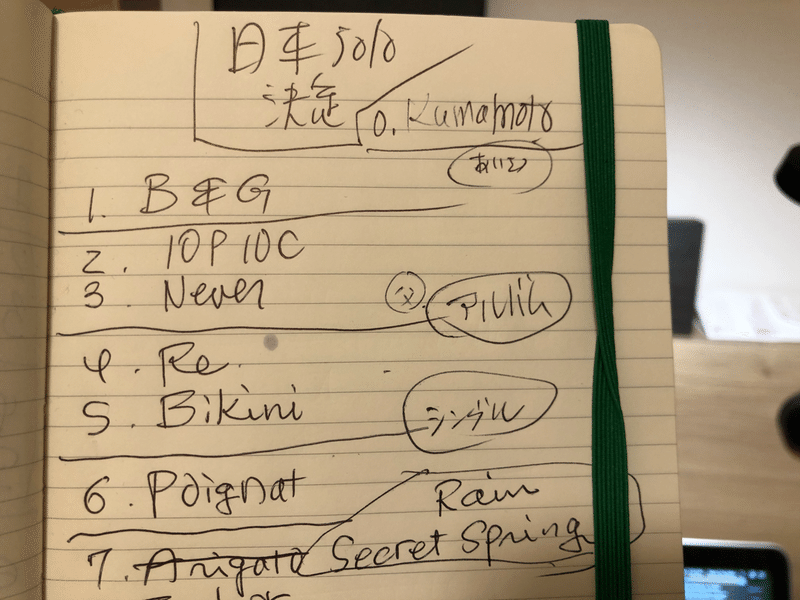 日本 solo
決定
0. Kumamoto
あいさつ
1. B & G
2. 10P10C
3 Never
父 アルバム
4. Re.
5. Bikini
シングル
6. Poignat
Rain
7. Arigato Secret Spring